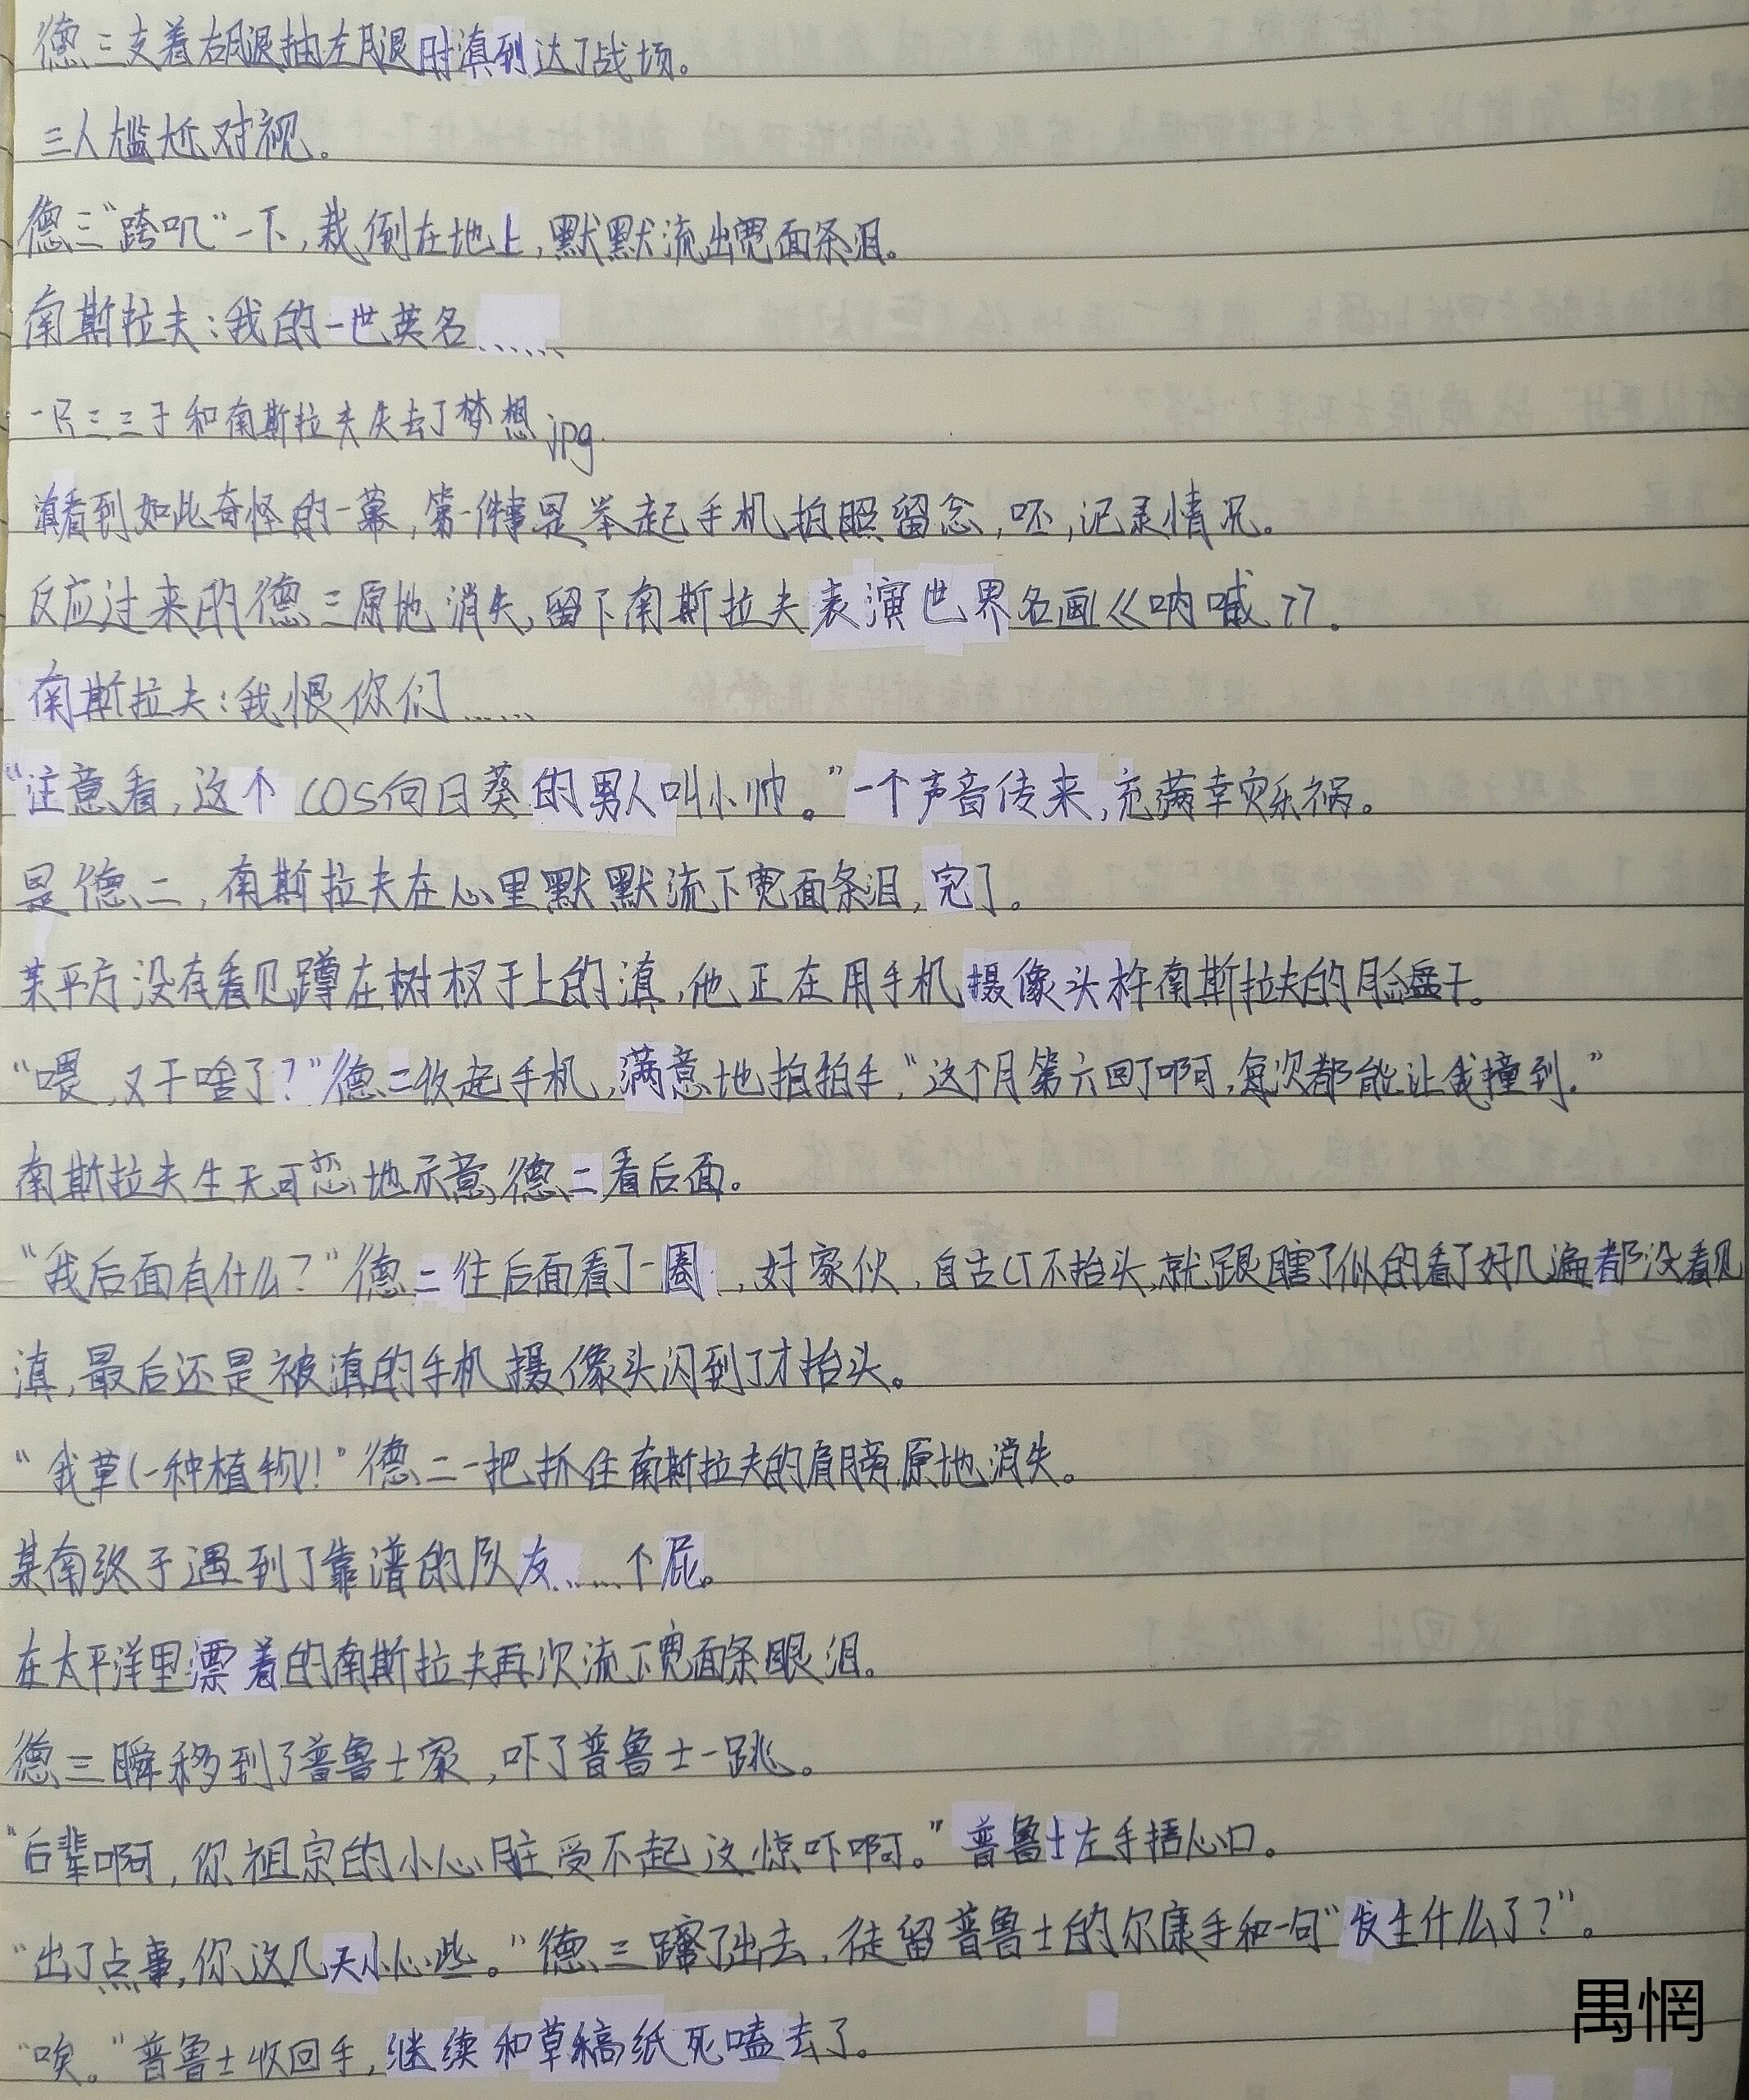 德三支着右腿抽左腿时滇到达了战场。
三人尴尬对视。
德三“跨叽”一下，栽倒在地上，默默流出宽面条泪。
南斯拉夫：我的一世英名……
一只三三子和南斯拉夫失去了梦想jpg.
滇看到如此奇怪的一幕，第一件事是举起手机拍照留念，呸，记录情况。
反应过来的德三原地消失，留下南斯拉夫表演世界名画《呐喊》。
南斯拉夫：我恨你们……
“注意看，这个cos向日葵的男人叫小帅。”一个声音传来，充满幸灾乐祸。
是德二，南斯拉夫在心里默默流下宽面条泪，完了。
某平方没有看见蹲在树杈子上的滇，他正在用手机摄像头杵南斯拉夫的脸盘子。
“喂，又干啥了？”德二收起手机，满意地拍拍手，“这个月第六回了啊，每次都能让我撞到。”
南斯拉夫生无可恋地示意德二看后面。
“我后面有什么？”德二往后面看了一圈，好家伙，自古CT不抬头，就跟瞎了似的看了好几遍都没看见
滇，最后还是被滇的手机摄像头闪到了才抬头。
“我草(一种植物)！”德二一把抓住南斯拉夫的肩膀原地消失。
某南终于遇到了靠谱的队友……个屁。
在太平洋里漂着的南斯拉夫再次流下宽面条眼泪。
德三瞬移到了普鲁士家，吓了普鲁士一跳。
“后辈啊，你祖宗的小心脏受不起这惊吓啊。”普鲁士左手捂心口。
“出了点事，你这几天小心些。”德三蹿了出去，徒留普鲁士的尔康手和一句“发生什么了？”。
“唉。”普鲁士收回手，继续和草稿纸死嗑去了。
禺惘